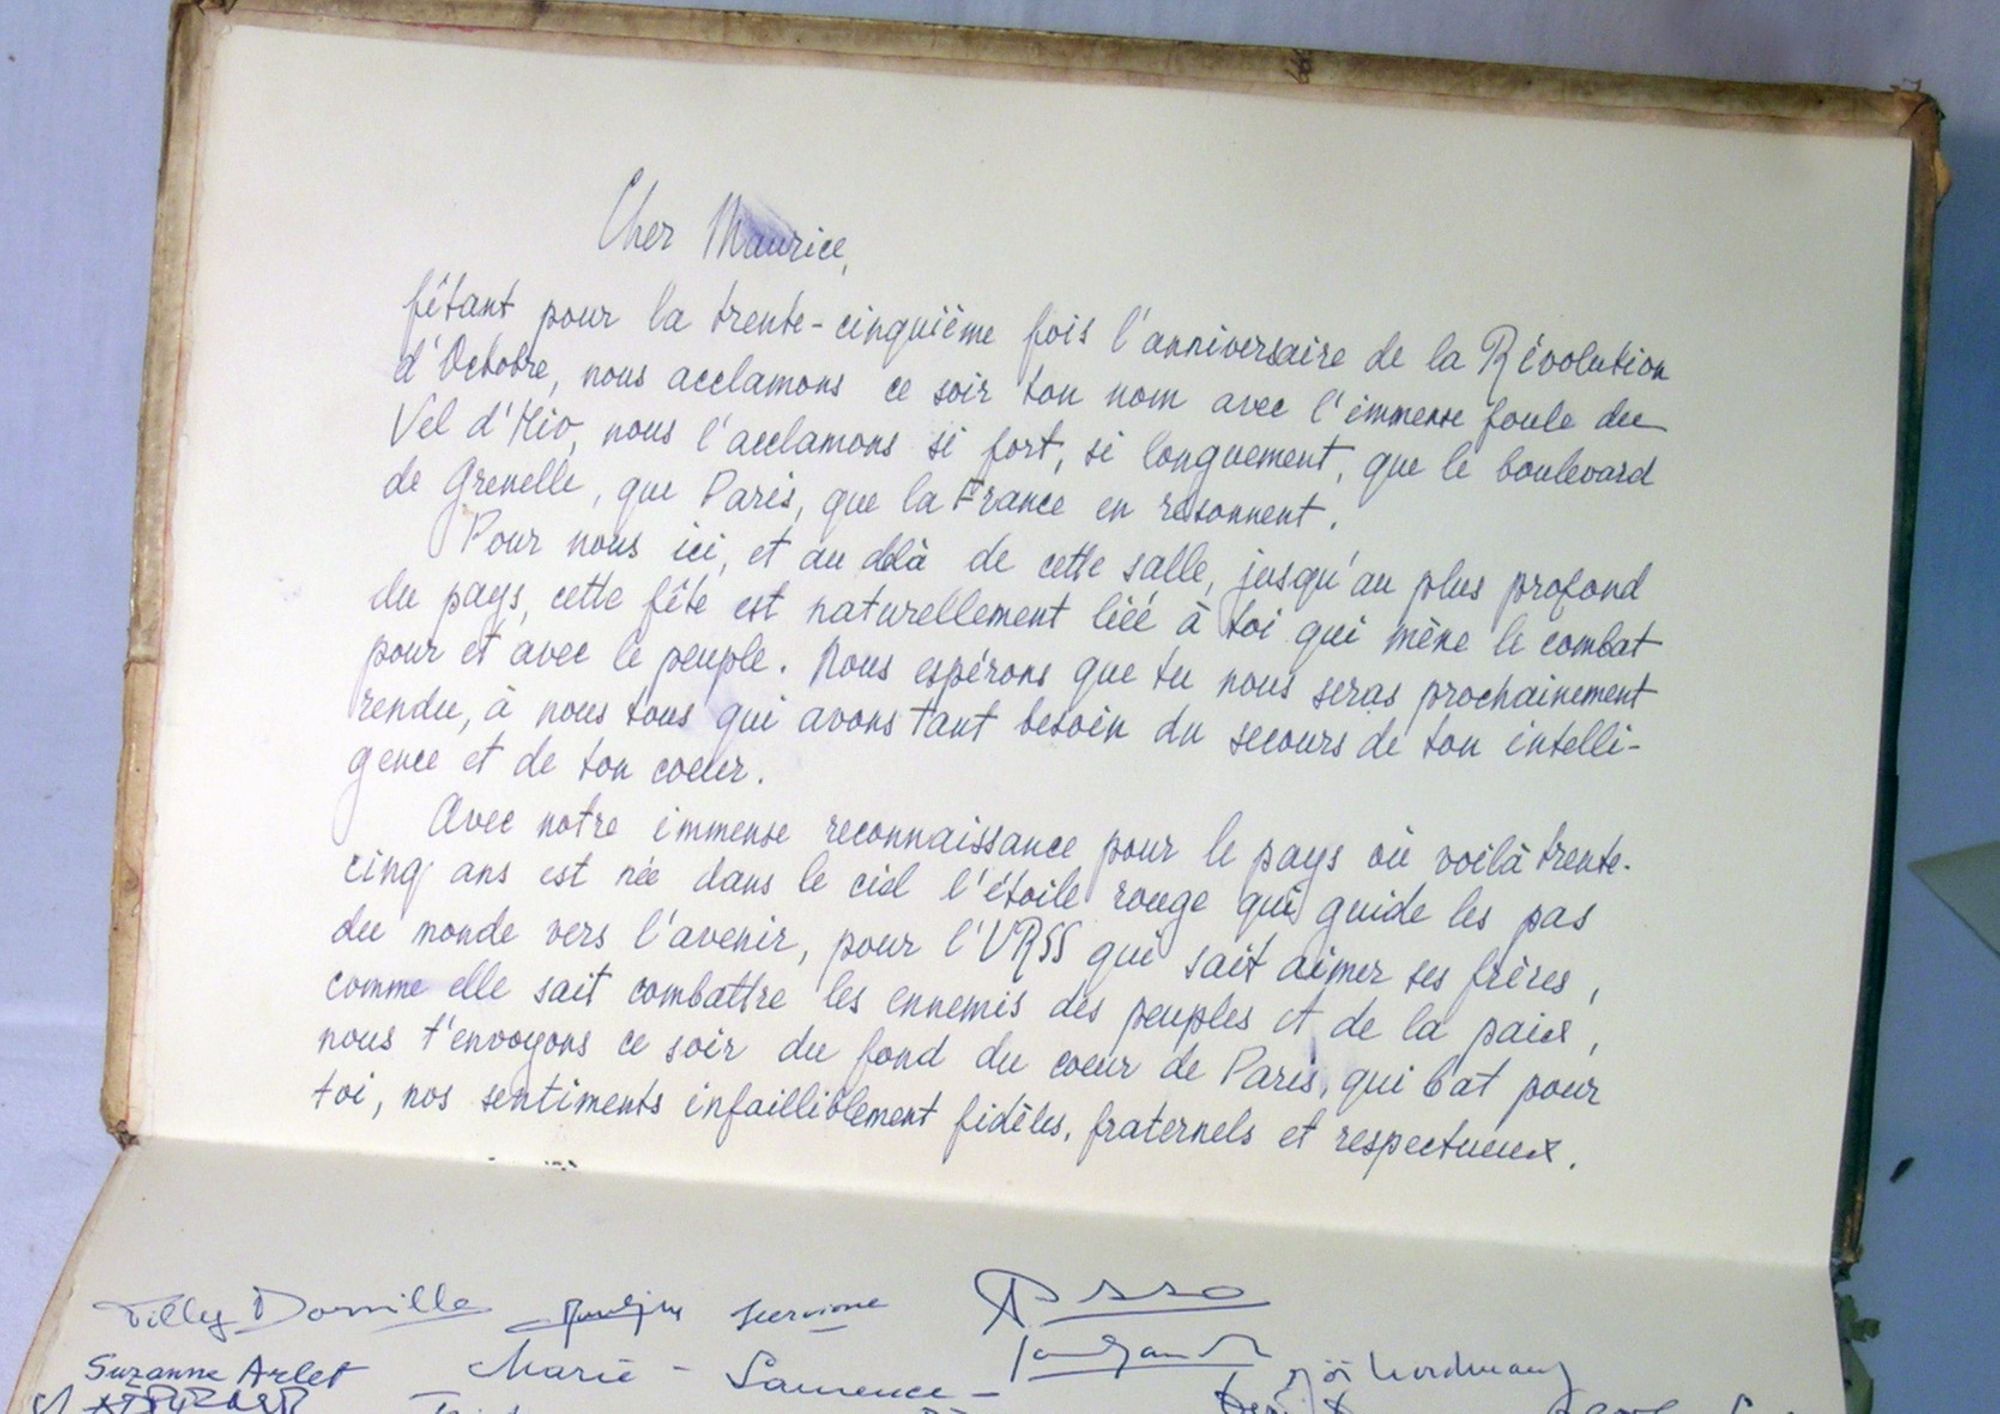 Cher Maurice,
fêtant pour la trente-cinquième fois l'anniversaire de la Révolution
d'Octobre, nous acclamons ce soir ton nom avec l'immense foule du
Vel d'Hiv, nous l'acclamons si fort, si longuement, que le boulevard
de Grenelle, que Paris, que la France en résonnent.
Pour nous ici, et au delà de cette salle, jusqu'au plus profond
du pays, cette fête est naturellement liée à toi qui mène le combat
pour et avec le peuple. Nous espérons que tu nous seras prochainement
rendu, à nous tous qui avons tant besoin du secours de ton intelli-
gence et de ton coeur.
Avec notre immense reconnaissance pour le pays où voilà trente-
cinq ans est née dans le ciel l'étoile rouge qui guide les pas
du monde vers l'avenir, pour l'URSS qui sait aimer ses frères,
comme elle sait combattre les ennemis des peuples et de la paix,
nous t'envoyons ce soir du fond du coeur de Paris, qui bat pour
toi, nos sentiments infailliblement fidèles, fraternels et respectueux.
Tilly Dorville
Suzanne Arlet Marie-Laurence